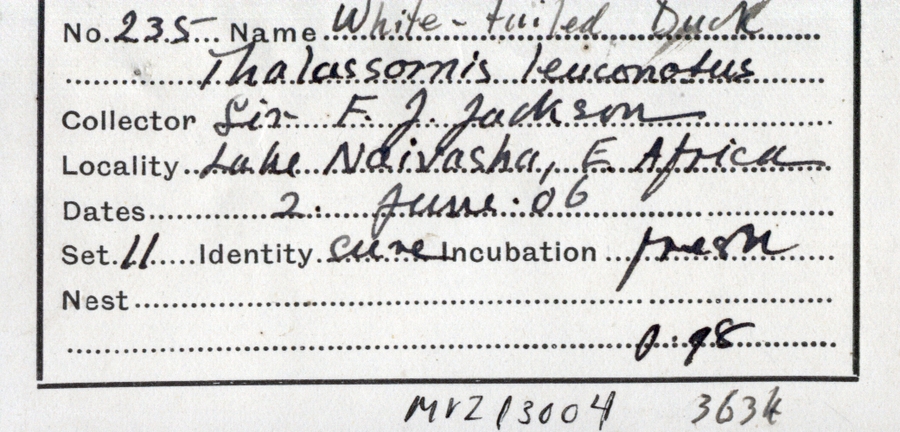 No. 235 Name White-tailed Duck
Thalassornis leuconotus
Collector Sir F. J. Jackson
Locality Lake Naivasha, E. Africa
Dates 2. June. 06
Set 11 Identity sure Incubation fresh
Nest
p. 98
MVZ 13004 3634